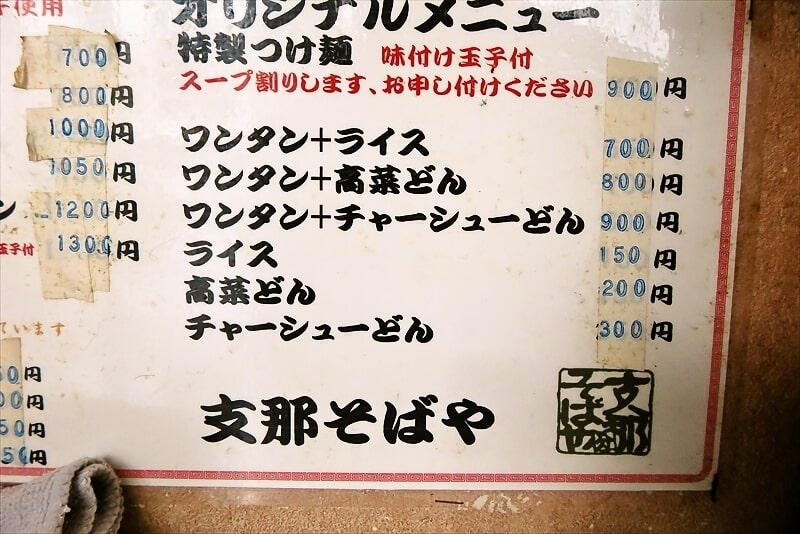 使用
700円
800円
1000円
1050円
1200円
玉子付 1300円
ています
円
円
50円
50円
オリジナルメニュー
特製つけ麺 味付け玉子付
スープ割りします、お申し付けください 900円
ワンタン+ライス 700円
ワンタン+高菜どん 800円
ワンタン+チャーシューどん 900円
ライス 150円
高菜どん 200円
チャーシューどん 300円
支那そばや
支那
そばや